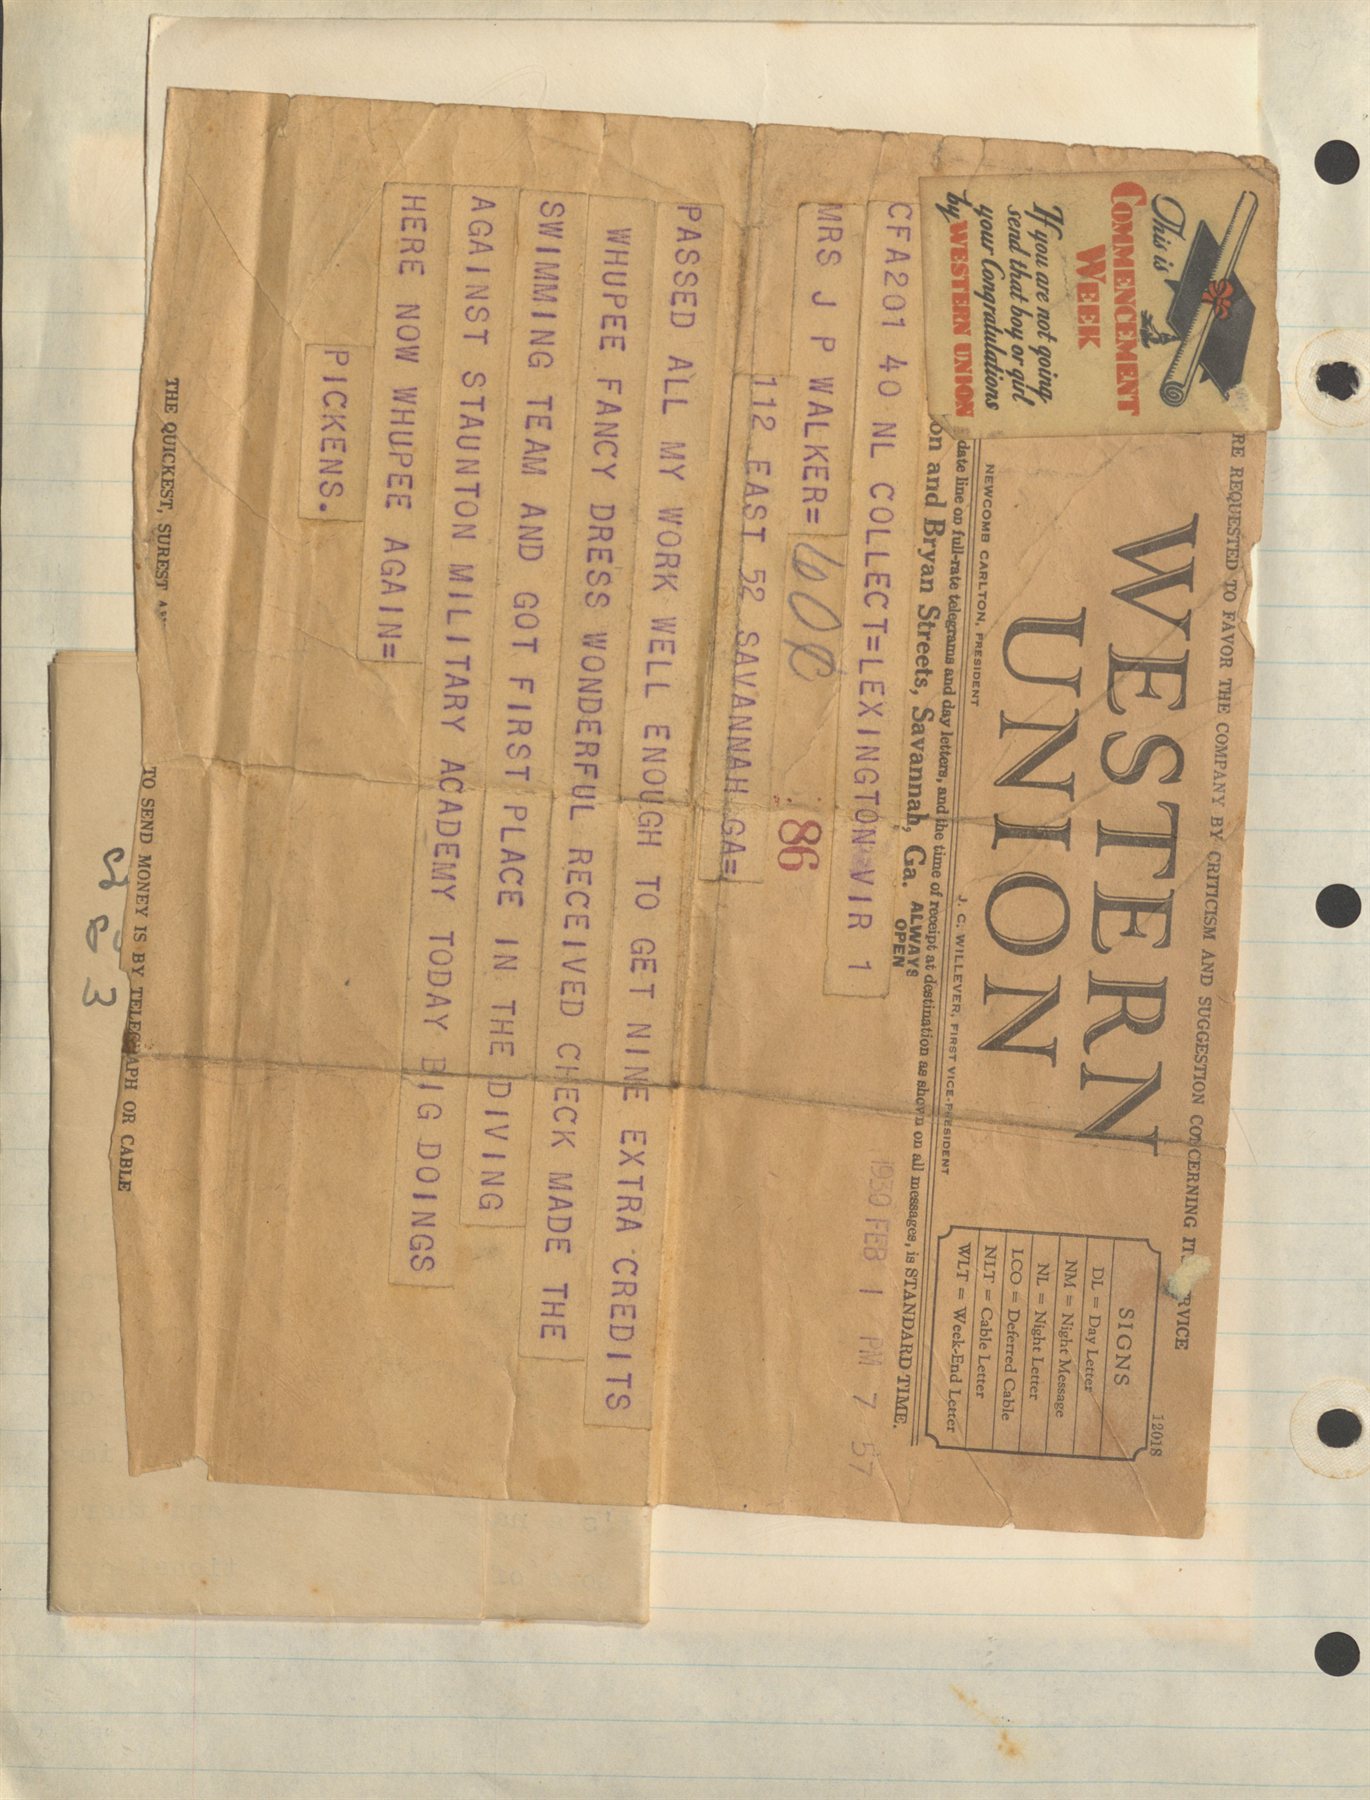 RE REQUESTED TO FAVOR THE COMPANY BY CRITICISM AND SUGGESTION CONCERNING ITS RVICE
12018
This is
COMMENCEMENT
WEEK
If you are not going
send that boy or girl
your Congratulations
by WESTERN UNION
WESTERN
UNION
NEWCOMB CARLTON, PRESIDENT
J. C. WILLEVER, FIRST VICE-PRESIDENT
SIGNS
DL = Day Letter
NM = Night Message
NL = Night Letter
LCO = Deferred Cable
NLT = Cable Letter
WLT = Week-End Letter
date line on full-rate telegrams and day letters, and the time of receipt at destination as shown on all messages, is STANDARD TIME.
on and Bryan Streets, Savannah, Ga. ALWAYS
OPEN
1930 FEB 1 PM 7 57
CFA201 40 NL COLLECT=LEXINGTON VIR 1
MRS J P WALKER=
86
112 EAST 52 SAVANNAH GA=
PASSED ALL MY WORK WELL ENOUGH TO GET NINE EXTRA CREDITS
WHUPEE FANCY DRESS WONDERFUL RECEIVED CHECK MADE THE
SWIMMING TEAM AND GOT FIRST PLACE IN THE DIVING
AGAINST STAUNTON MILITARY ACADEMY TODAY BIG DOINGS
HERE NOW WHUPEE AGAIN=
PICKENS.
THE QUICKEST, SUREST AN
TO SEND MONEY IS BY TELEGRAPH OR CABLE